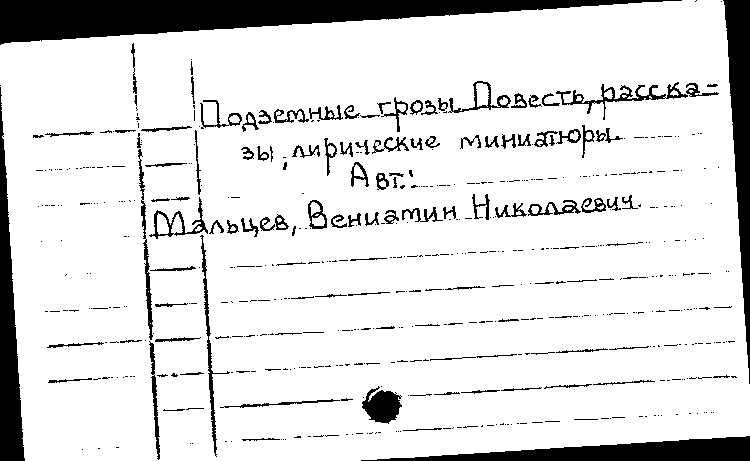 Подземные грозы Повесть, расска-
зы, лирические миниатюры.
Авт.:
Мальцев, Вениамин Николаевич.